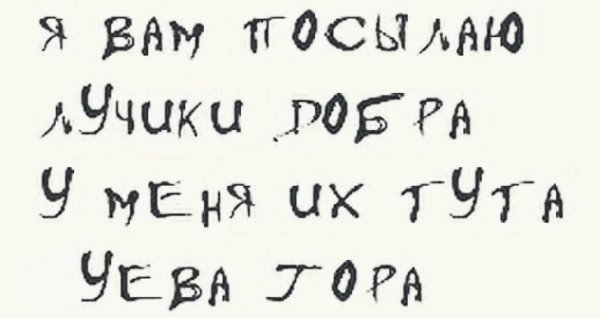 Я ВАМ ПОСЫЛАЮ
ЛУЧИКИ ДОБРА
У МЕНЯ ИХ ТУТА
УЕВА ГОРА